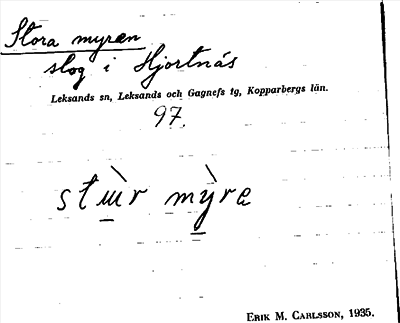 Stora myran
slog i Hjortnäs
Leksands sn, Leksands och Gagnefs tg, Kopparbergs län.
97.
stɯ̀r mỳra
ERIK M. CARLSSON, 1935.